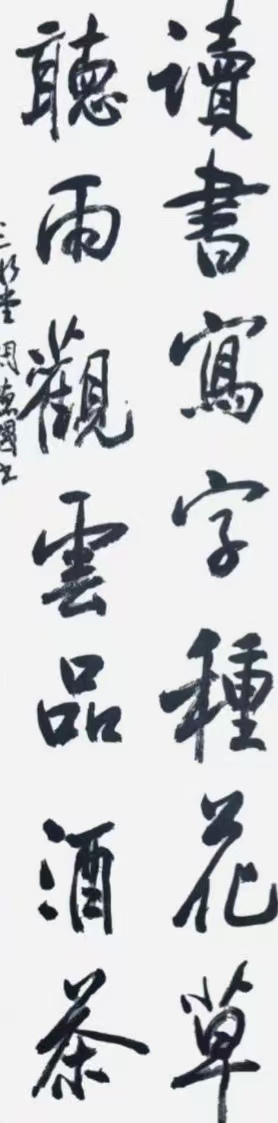 讀書寫字種花草
聽雨觀雲品酒茶
三竹堂周惠國書